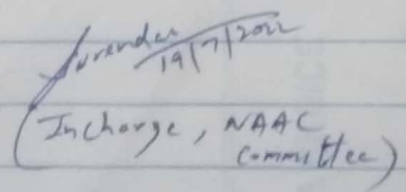 Surender
19/7/2022
(Incharge, NAAC
Committee)